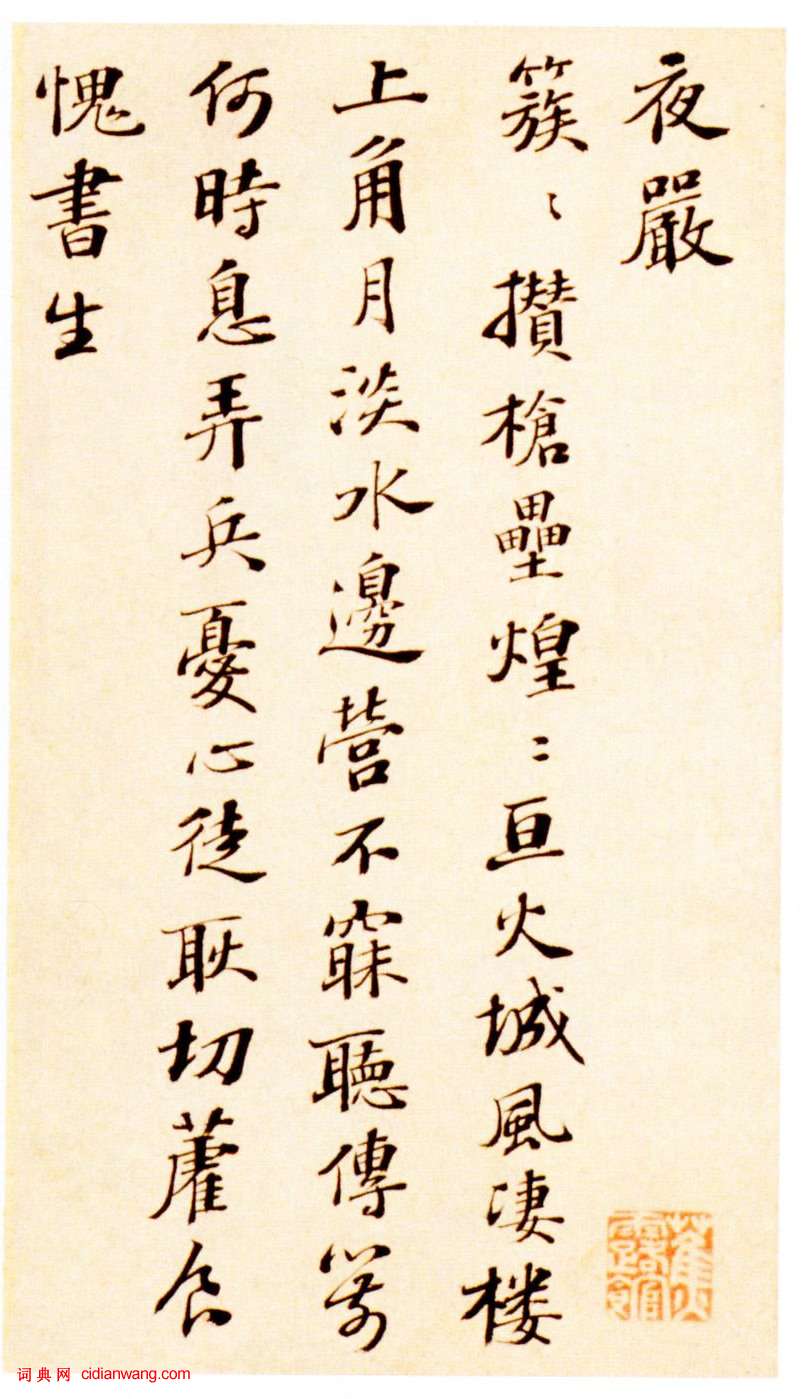 夜嚴
簇〻攅槍壘煌〻亘火城風凄楼
上角月淡水邊營不寐聽傳箭
何時息弄兵憂心徒耿切藿食
愧書生
词典网 cidianwang.com